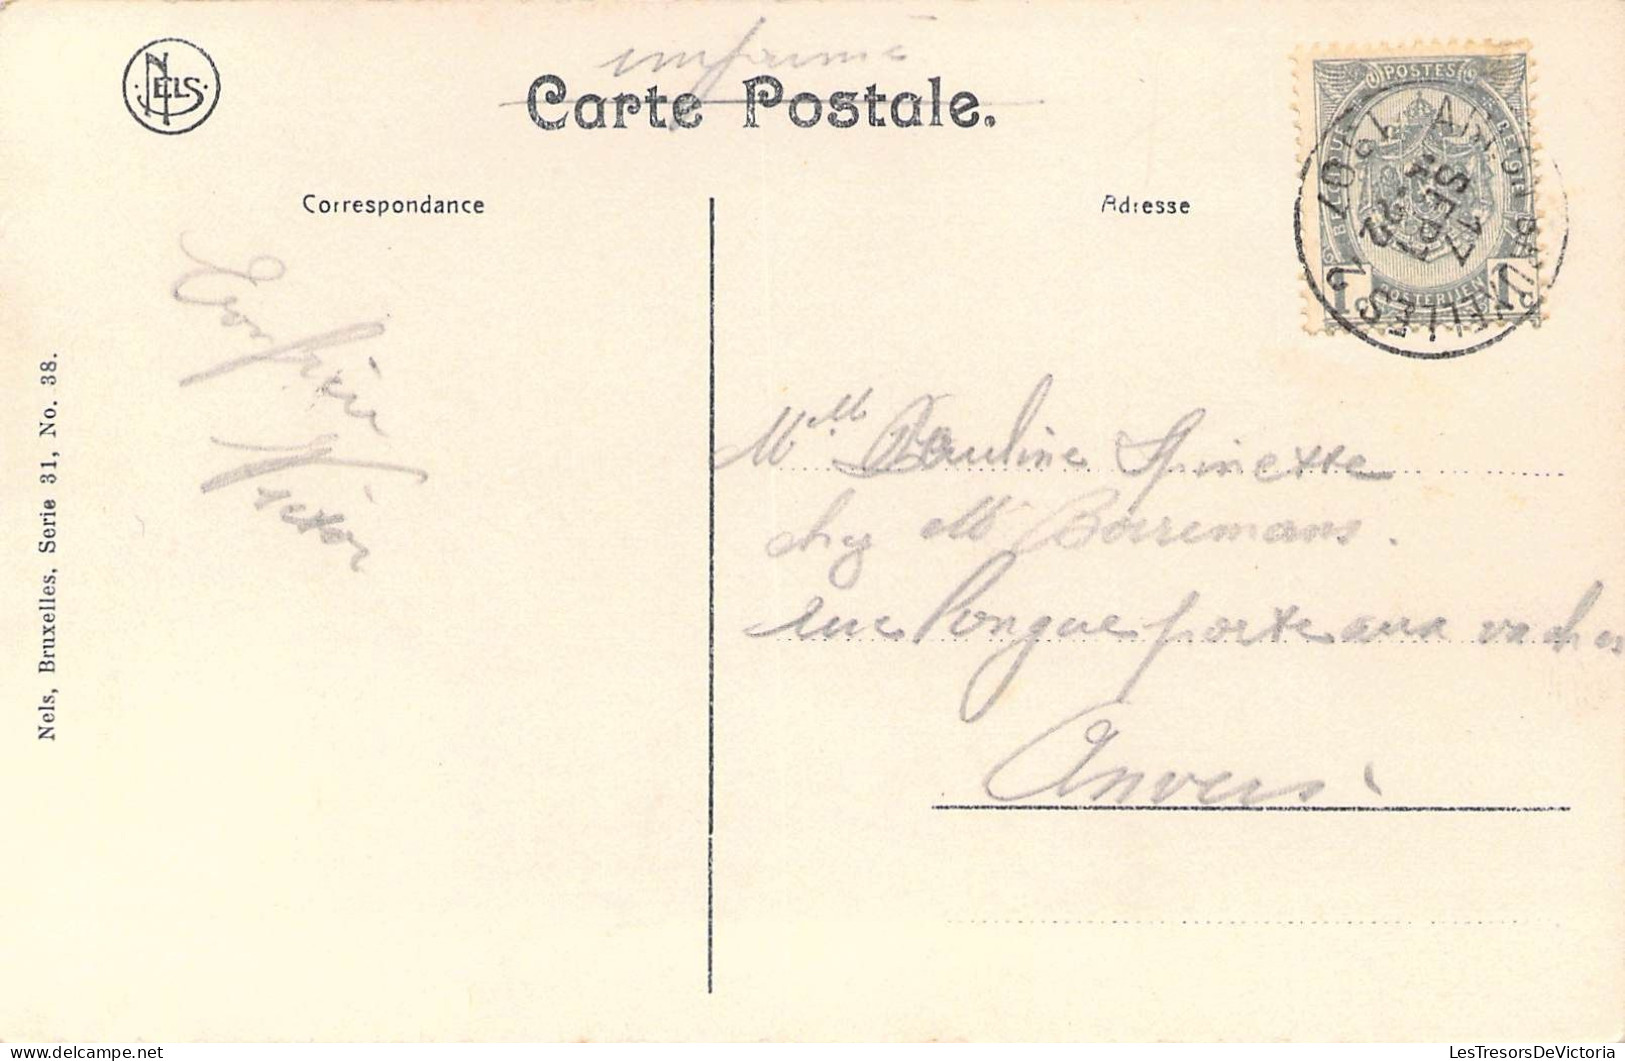 imprimé
NELS
Carte Postale.
Correspondance
Adresse
POSTES
BELGIQUE
BELGIE
POSTERIJEN
1
1
ARLON BRUXELLES 2
17
SEPT
1907
Victor
Mlle Pauline Spinette
chez M Borremans.
rue longue porte aux vaches
Anvers.
Nels, Bruxelles, Serie 31, No. 38.
LesTresorsDeVictoria